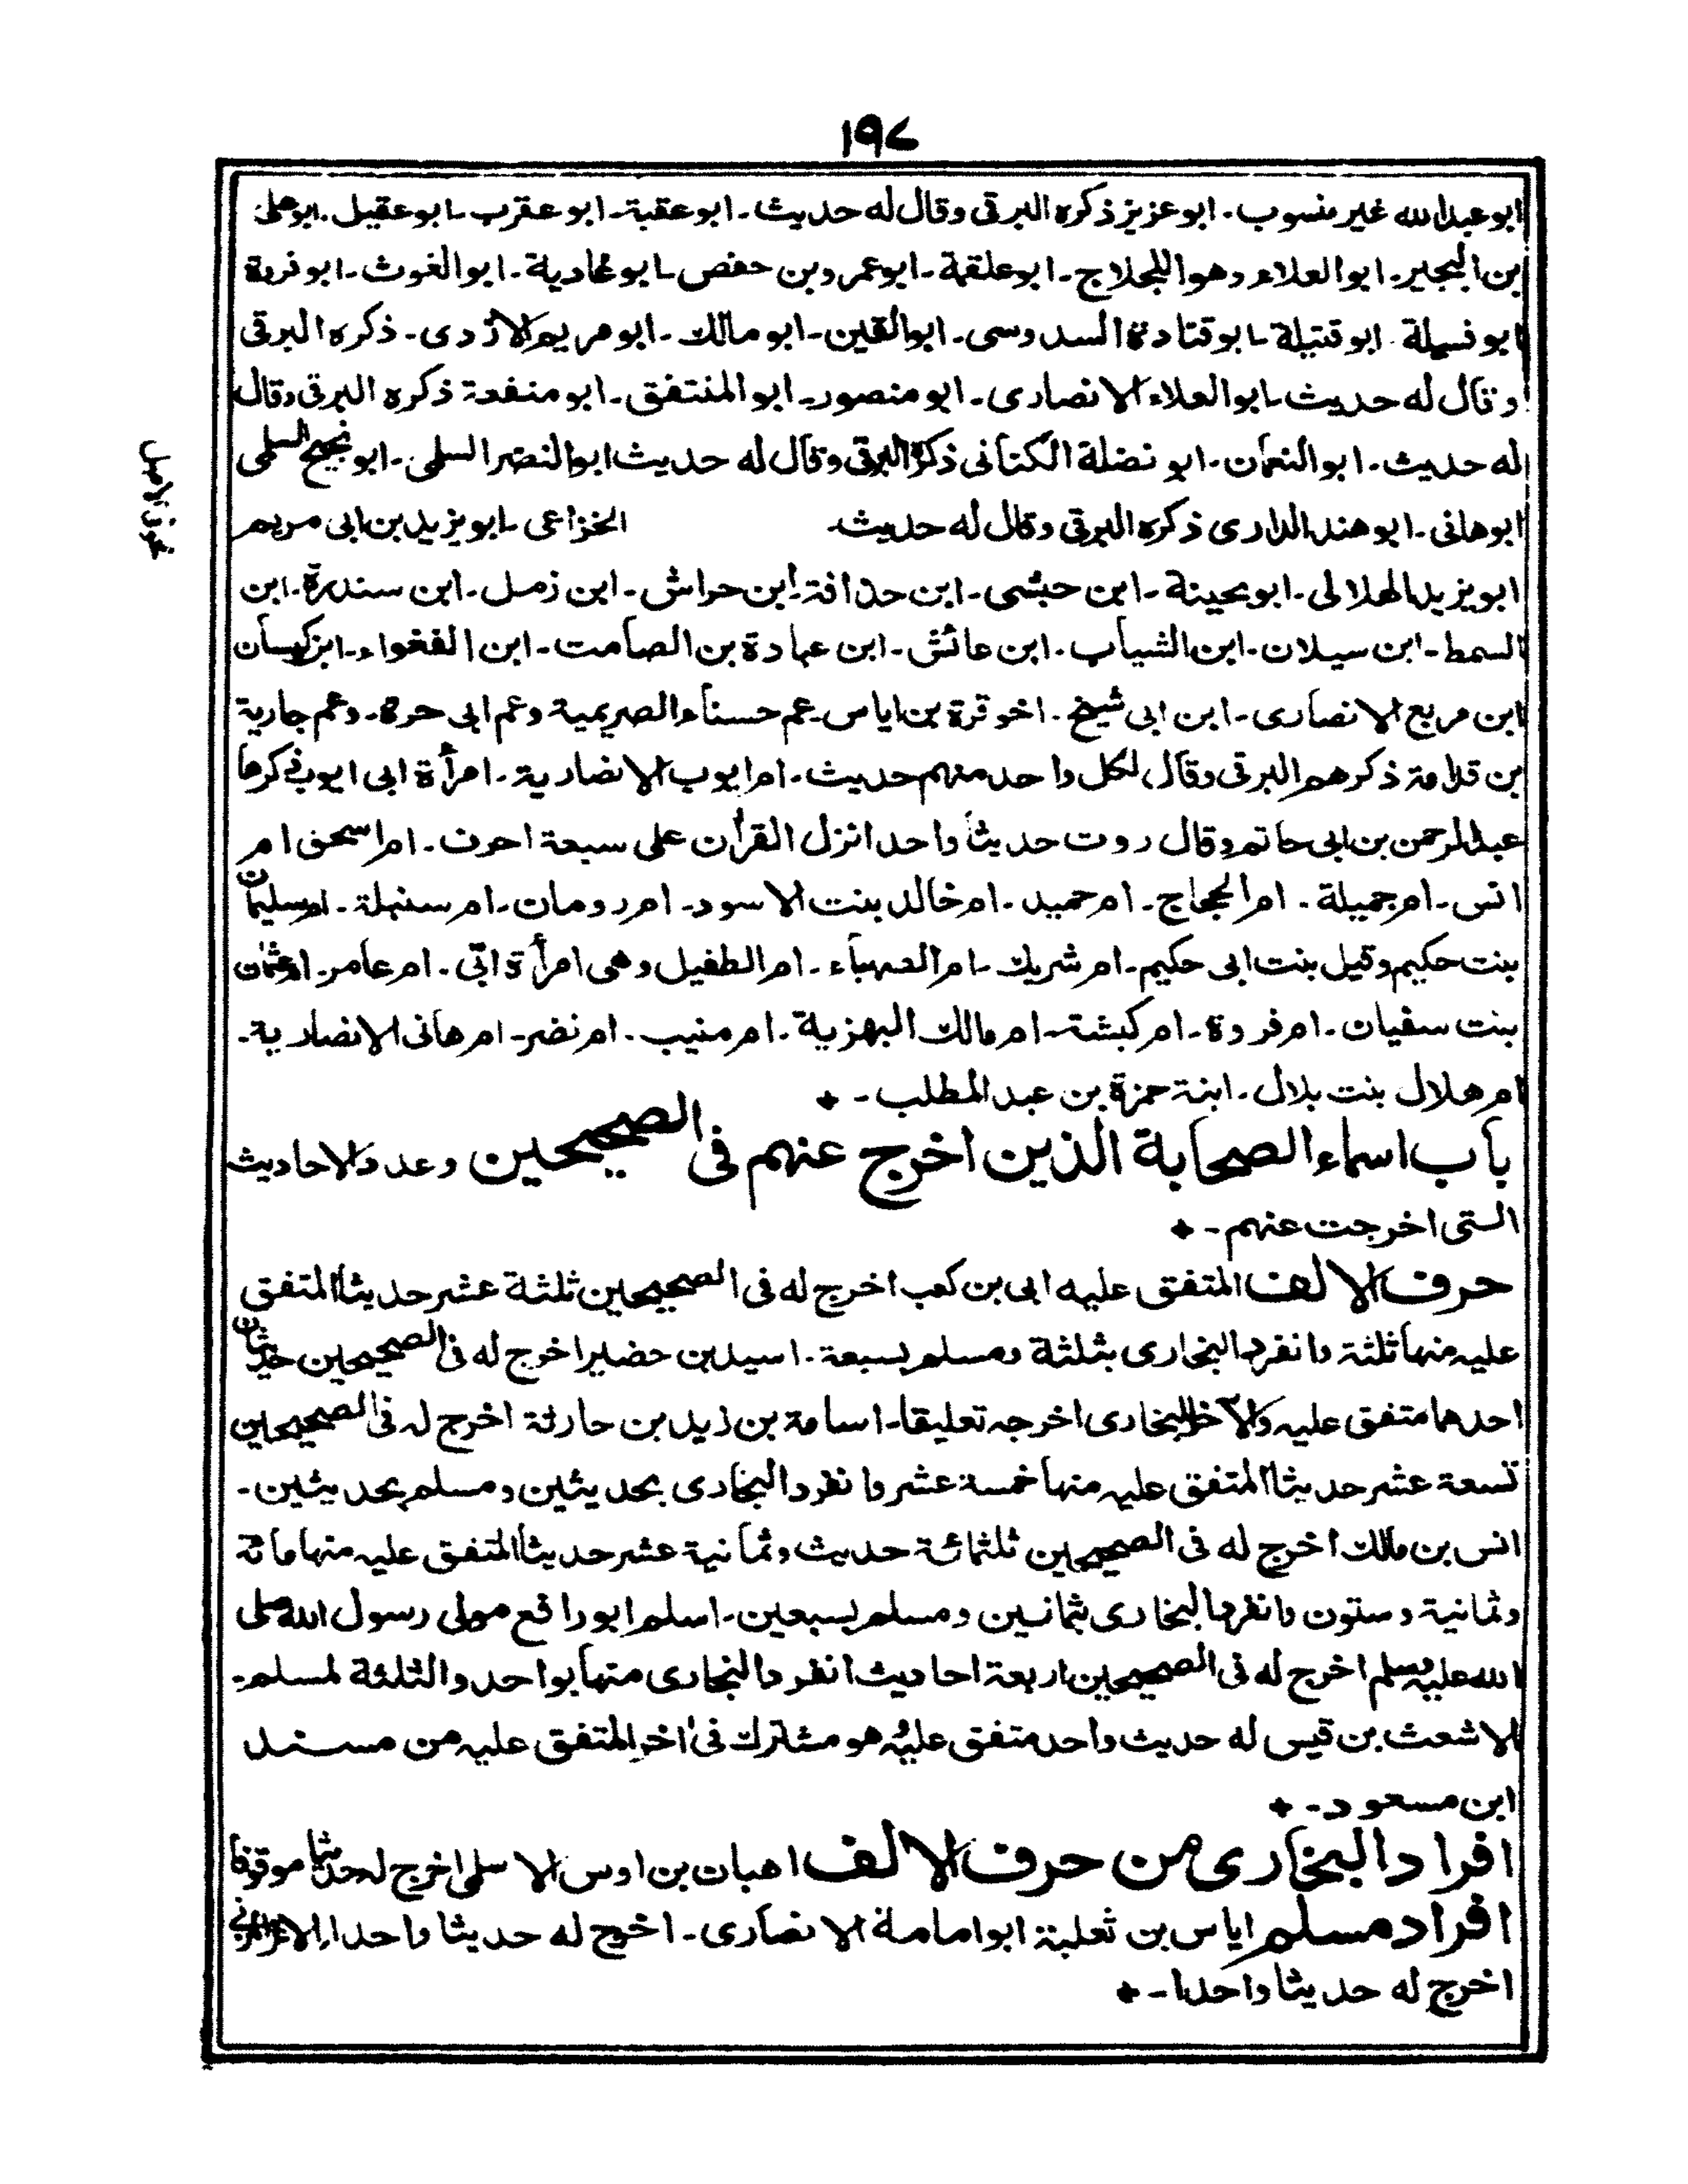 ۱۹۷
ابو عبد الله غير منسوب۔ ابو عزيز ذكره البرقى وقال له حديث۔ ابو عقبة۔ ابو عقرب۔ ابو عقيل۔ ابو على
بن البجير۔ ابو العلاء وهو اللجلاج۔ ابو علقمة۔ ابو عمرو بن حفص۔ ابو غادية۔ ابو الغوث۔ ابو فروة
ابو فسيلة۔ ابو قتيلة۔ ابو قتادة السدوسى۔ ابو القين۔ ابو مالك۔ ابو مريم الازدى۔ ذكره البرقى
وقال له حديث۔ ابو العلاء الانصارى۔ ابو منصور۔ ابو المنتفق۔ ابو منفعة ذكره البرقى وقال
له حديث۔ ابو النعمان۔ ابو نضلة الكنانى ذكره البرقى وقال له حديث ابو النضر السلمى۔ ابو نجيح السلمى
ابو هانى۔ ابو هند الدارى ذكره البرقى وقال له حديث۔ الخزاعى۔ ابو يزيد بن ابى مريم
ابو يزيد الهلالى۔ ابو بحينة۔ ابن حبشى۔ ابن حذافة۔ ابن حراش۔ ابن زمل۔ ابن سندرة۔ ابن
السمط۔ ابن سيلان۔ ابن الشياب۔ ابن عائش۔ ابن عبادة بن الصامت۔ ابن الفغواء۔ ابن كيسان
ابن مربع الانصارى۔ ابن ابى شيخ۔ اخو قرة بن اياس۔ عم حسناء الصريمية وعم ابى حرة۔ وعم جارية
بن قدامة ذكرهم البرقى وقال لكل واحد منهم حديث۔ ام ايوب الانصارية۔ امرأة ابى ايوب ذكرها
عبد الرحمن بن ابى حاتم وقال روت حديثا واحد انزل القرأن على سبعة احرف۔ ام اسحق ام
انس۔ ام جميلة۔ ام الحجاج۔ ام حميد۔ ام خالد بنت الاسود۔ ام رومان۔ ام سنبلة۔ ام سليمان
بنت حكيم وقيل بنت ابى حكيم۔ ام شريك۔ ام الصهباء۔ ام الطفيل وهى امرأة ابّى۔ ام عامر۔ ام عثمان
بنت سفيان۔ ام فروة۔ ام كبشة۔ ام مالك البهزية۔ ام منيب۔ ام نضر۔ ام هانى الانصارية۔
ام هلال بنت بلال۔ ابنة حمزة بن عبد المطلب۔
باب اسماء الصحابة الذين اخرج عنهم فى الصحيحين وعدد الاحاديث
التى اخرجت عنهم۔
حرف الالف المتفق عليه ابى بن كعب اخرج له فى الصحيحين ثلثة عشر حديثا المتفق
عليه منها ثلثة وانفرد البخارى بثلثة ومسلم بسبعة۔ اسيد بن حضير اخرج له فى الصحيحين حديثان
احدهما متفق عليه والآخر للبخارى اخرجه تعليقا۔ اسامة بن زيد بن حارثة اخرج له فى الصحيحين
تسعة عشر حديثا المتفق عليه منها خمسة عشر وانفرد البخارى بحديثين ومسلم بحديثين۔
انس بن مالك اخرج له فى الصحيحين ثلثمائة حديث وثمانية عشر حديثا المتفق عليه منها مائة
وثمانية وستون وانفرد البخارى بثمانين ومسلم بسبعين۔ اسلم ابو رافع مولى رسول الله صلى
الله عليه وسلم اخرج له فى الصحيحين اربعة احاديث انفرد البخارى منها بواحد والثلثة لمسلم۔
الاشعث بن قيس له حديث واحد متفق عليه وهو مشترك فى اخر المتفق عليه من مسند
ابن مسعود۔
افراد البخارى من حرف الالف اهبان بن اوس الاسلمى اخرج له حديثا موقوفا
افراد مسلم اياس بن ثعلبة ابو امامة الانصارى۔ اخرج له حديثا واحدا۔ الاغر المزنى
اخرج له حديثا واحدا۔